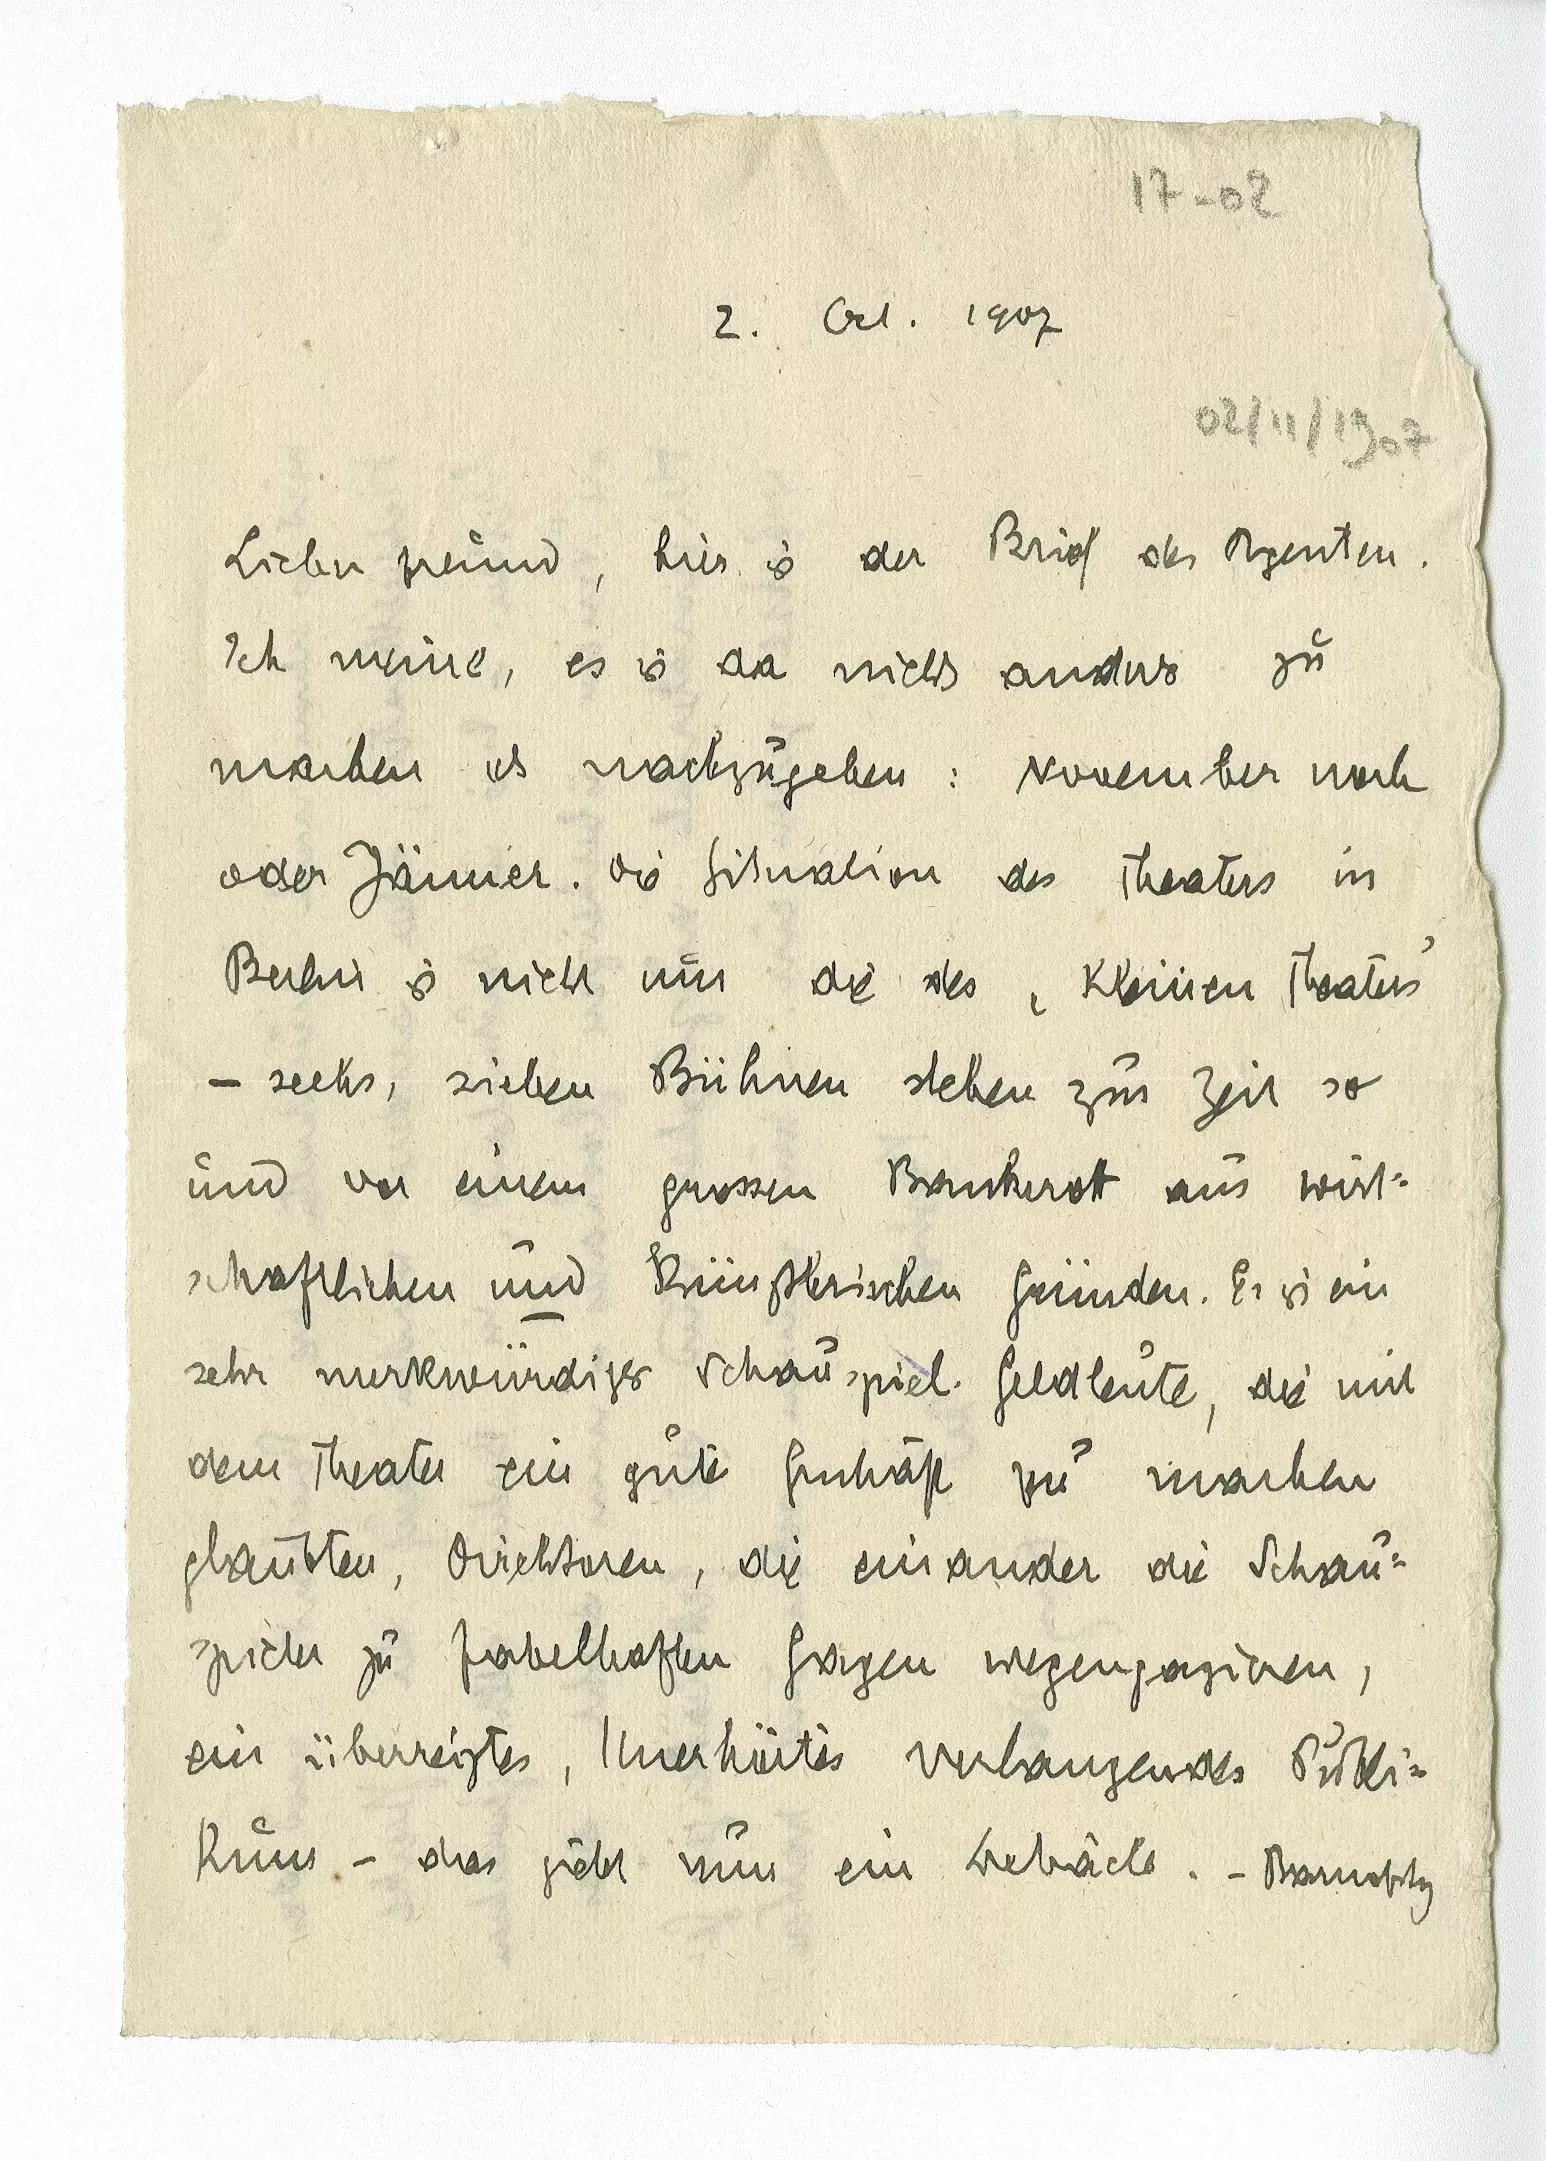 17-02
2. Oct. 1907
02/11/1907
Lieber Freund, hier is der Brief des Agenten.
Ich meine, es is da nichts anders zu
machen als nachzugeben: November noch
oder Jänner. Die Situation des Theaters in
Berlin is nicht nur die des „Kleinen Theaters"
– sechs, sieben Bühnen stehen zur Zeit so
und vor einem grossen Bankerott aus wirt=
schaftlichen und künstlerischen Gründen. Es is ein
sehr merkwürdiges Schauspiel. Geldleute, die mit
dem Theater ein gutes Geschäft zu machen
glaubten, Direktoren, die einander die Schau=
spieler zu fabelhaften Gagen wegengagieren,
ein überreiztes, Unerhörtes verlangendes Publi=
kum – das giebt nun ein Debâcle. – Barnowsky